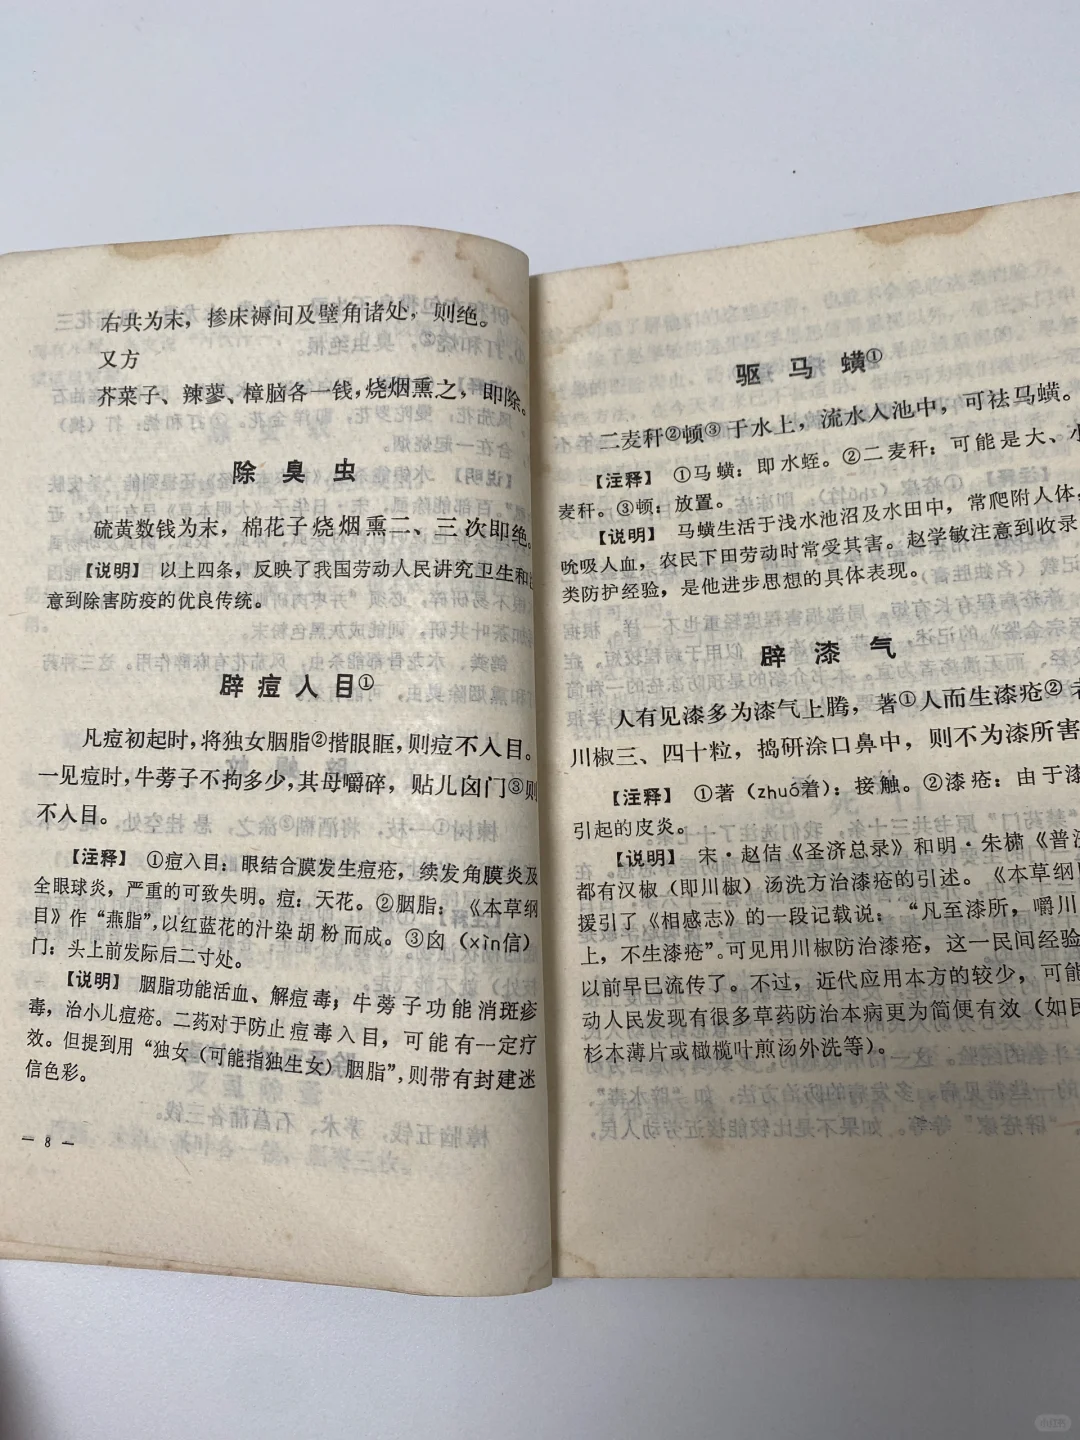 右共为末，掺床褥间及壁角诸处，则绝。
又方
芥菜子、辣蓼、樟脑各一钱，烧烟熏之，即除。
除臭虫
硫黄数钱为末，棉花子烧烟熏二、三次即绝。
【说明】 以上四条，反映了我国劳动人民讲究卫生和
意到除害防疫的优良传统。
辟痘入目①
凡痘初起时，将独女胭脂②揩眼眶，则痘不入目。
一见痘时，牛蒡子不拘多少，其母嚼碎，贴儿囟门③则
不入目。
【注释】 ①痘入目：眼结合膜发生痘疮，续发角膜炎及
全眼球炎，严重的可致失明。痘：天花。②胭脂：《本草纲
目》作“燕脂”，以红蓝花的汁染胡粉而成。③囟（xìn信）
门：头上前发际后二寸处。
【说明】 胭脂功能活血、解痘毒；牛蒡子功能消斑疹
毒，治小儿痘疮。二药对于防止痘毒入目，可能有一定疗
效。但提到用“独女（可能指独生女）胭脂”，则带有封建迷
信色彩。
— 8 —
驱马蟥①
二麦秆②顿③于水上，流水入池中，可祛马蟥。
【注释】 ①马蟥：即水蛭。②二麦秆：可能是大、小
麦秆。③顿：放置。
【说明】 马蟥生活于浅水池沼及水田中，常爬附人体，
吮吸人血，农民下田劳动时常受其害。赵学敏注意到收录
类防护经验，是他进步思想的具体表现。
辟漆气
人有见漆多为漆气上腾，著①人而生漆疮②者
川椒三、四十粒，捣研涂口鼻中，则不为漆所害
【注释】 ①著（zhuó着）：接触。②漆疮：由于漆
引起的皮炎。
【说明】 宋·赵佶《圣济总录》和明·朱橚《普济
都有汉椒（即川椒）汤洗方治漆疮的引述。《本草纲目
援引了《相感志》的一段记载说：“凡至漆所，嚼川
上，不生漆疮”。可见用川椒防治漆疮，这一民间经验
以前早已流传了。不过，近代应用本方的较少，可能
动人民发现有很多草药防治本病更为简便有效（如民
杉木薄片或橄榄叶煎汤外洗等）。
小红书